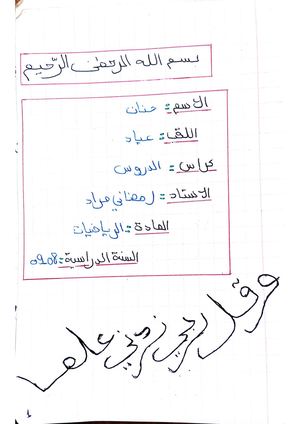 بسم الله الرحمن الرحيم
الاسم: حنان
اللقب: عباد
كراس: الدروس
الاستاذ: رمضاني مراد
المادة: الرياضيات
السنة الدراسية: 0908
وقل ربي زدني علما
1